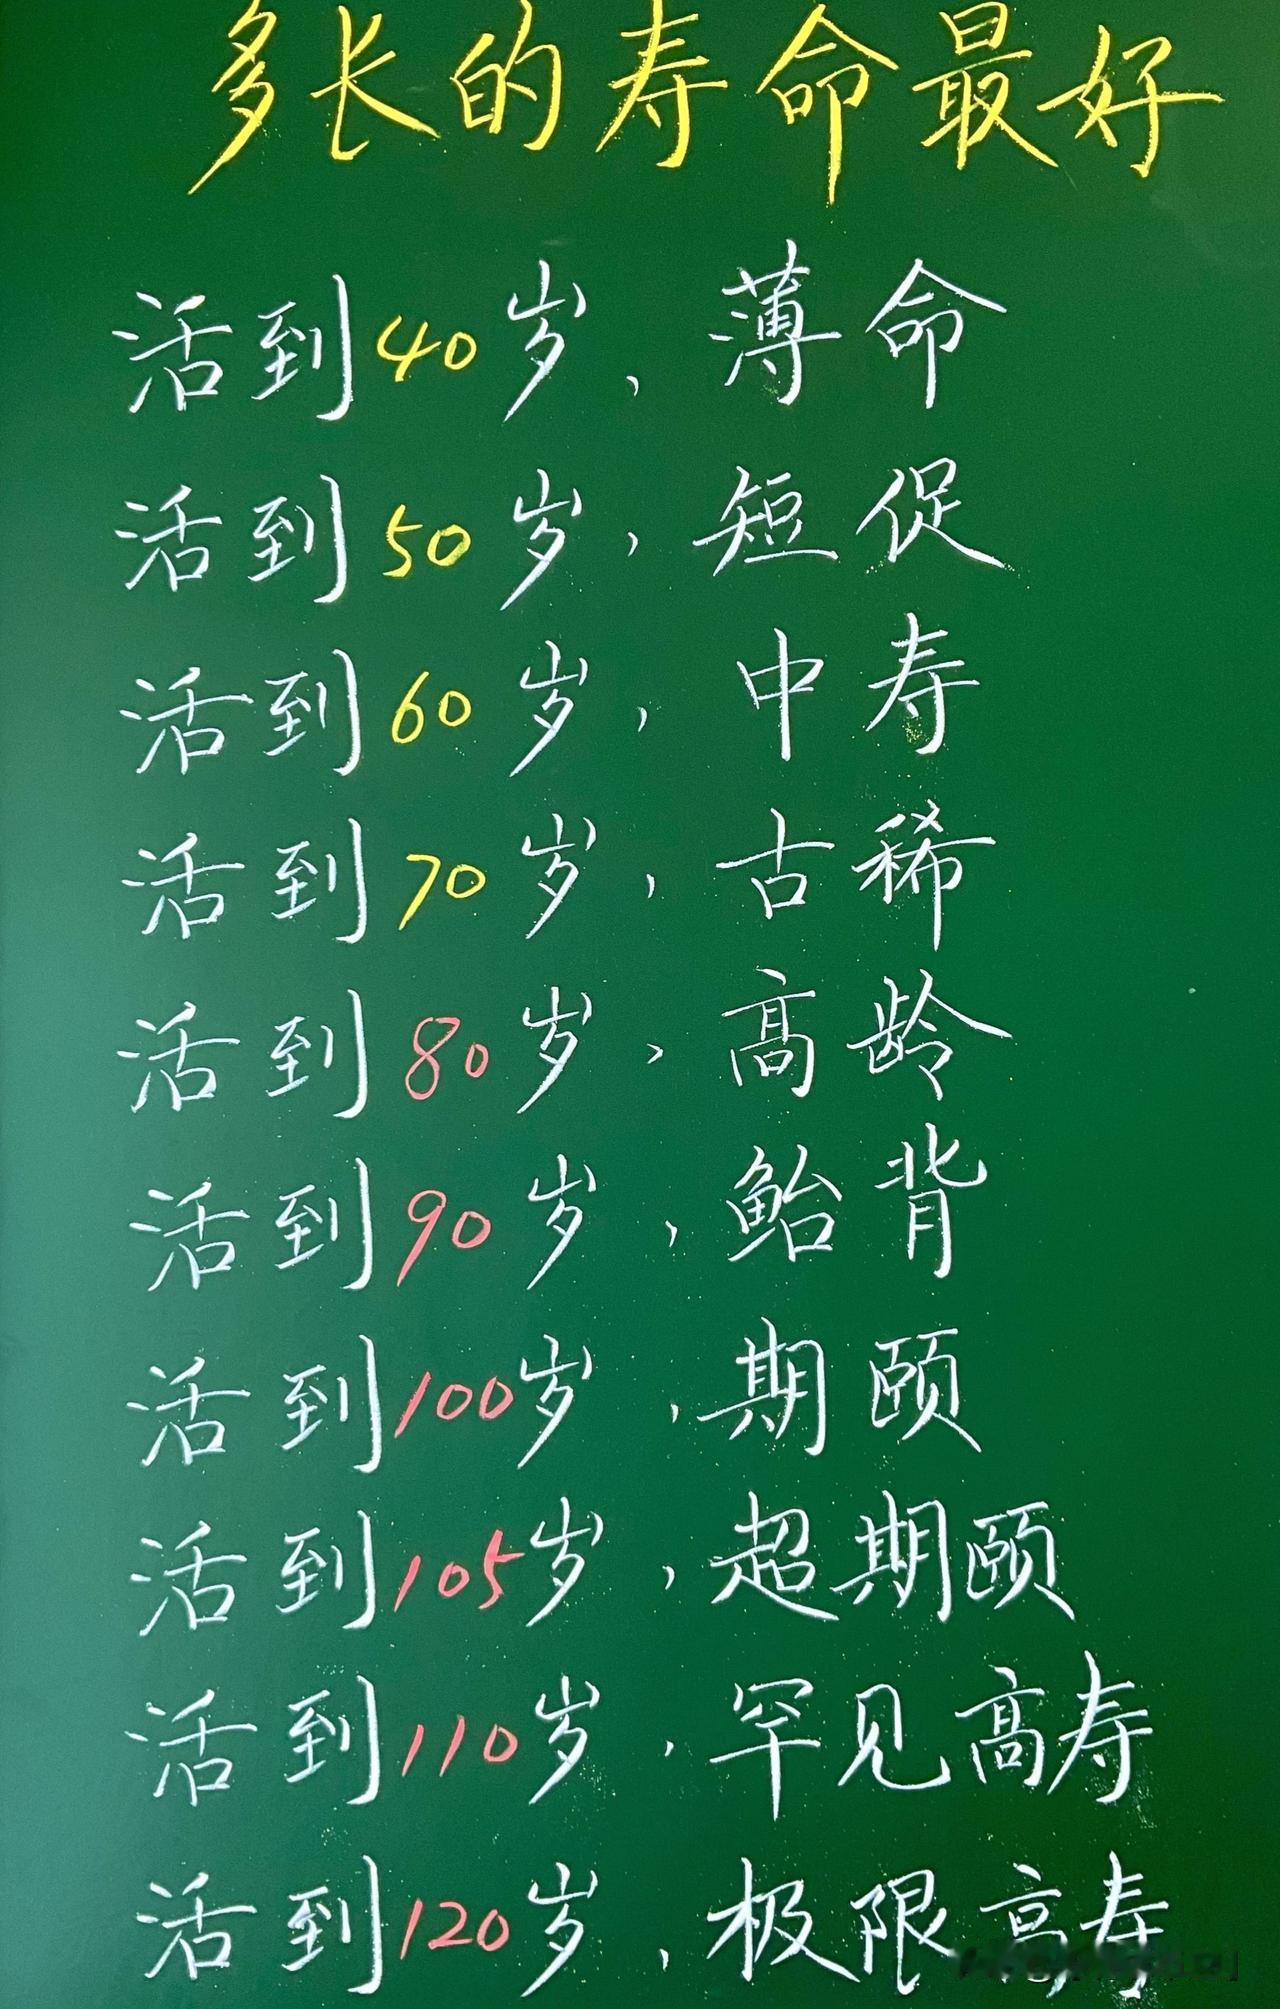 多长的寿命最好
活到40岁，薄命
活到50岁，短促
活到60岁，中寿
活到70岁，古稀
活到80岁，高龄
活到90岁，鲐背
活到100岁，期颐
活到105岁，超期颐
活到110岁，罕见高寿
活到120岁，极限高寿